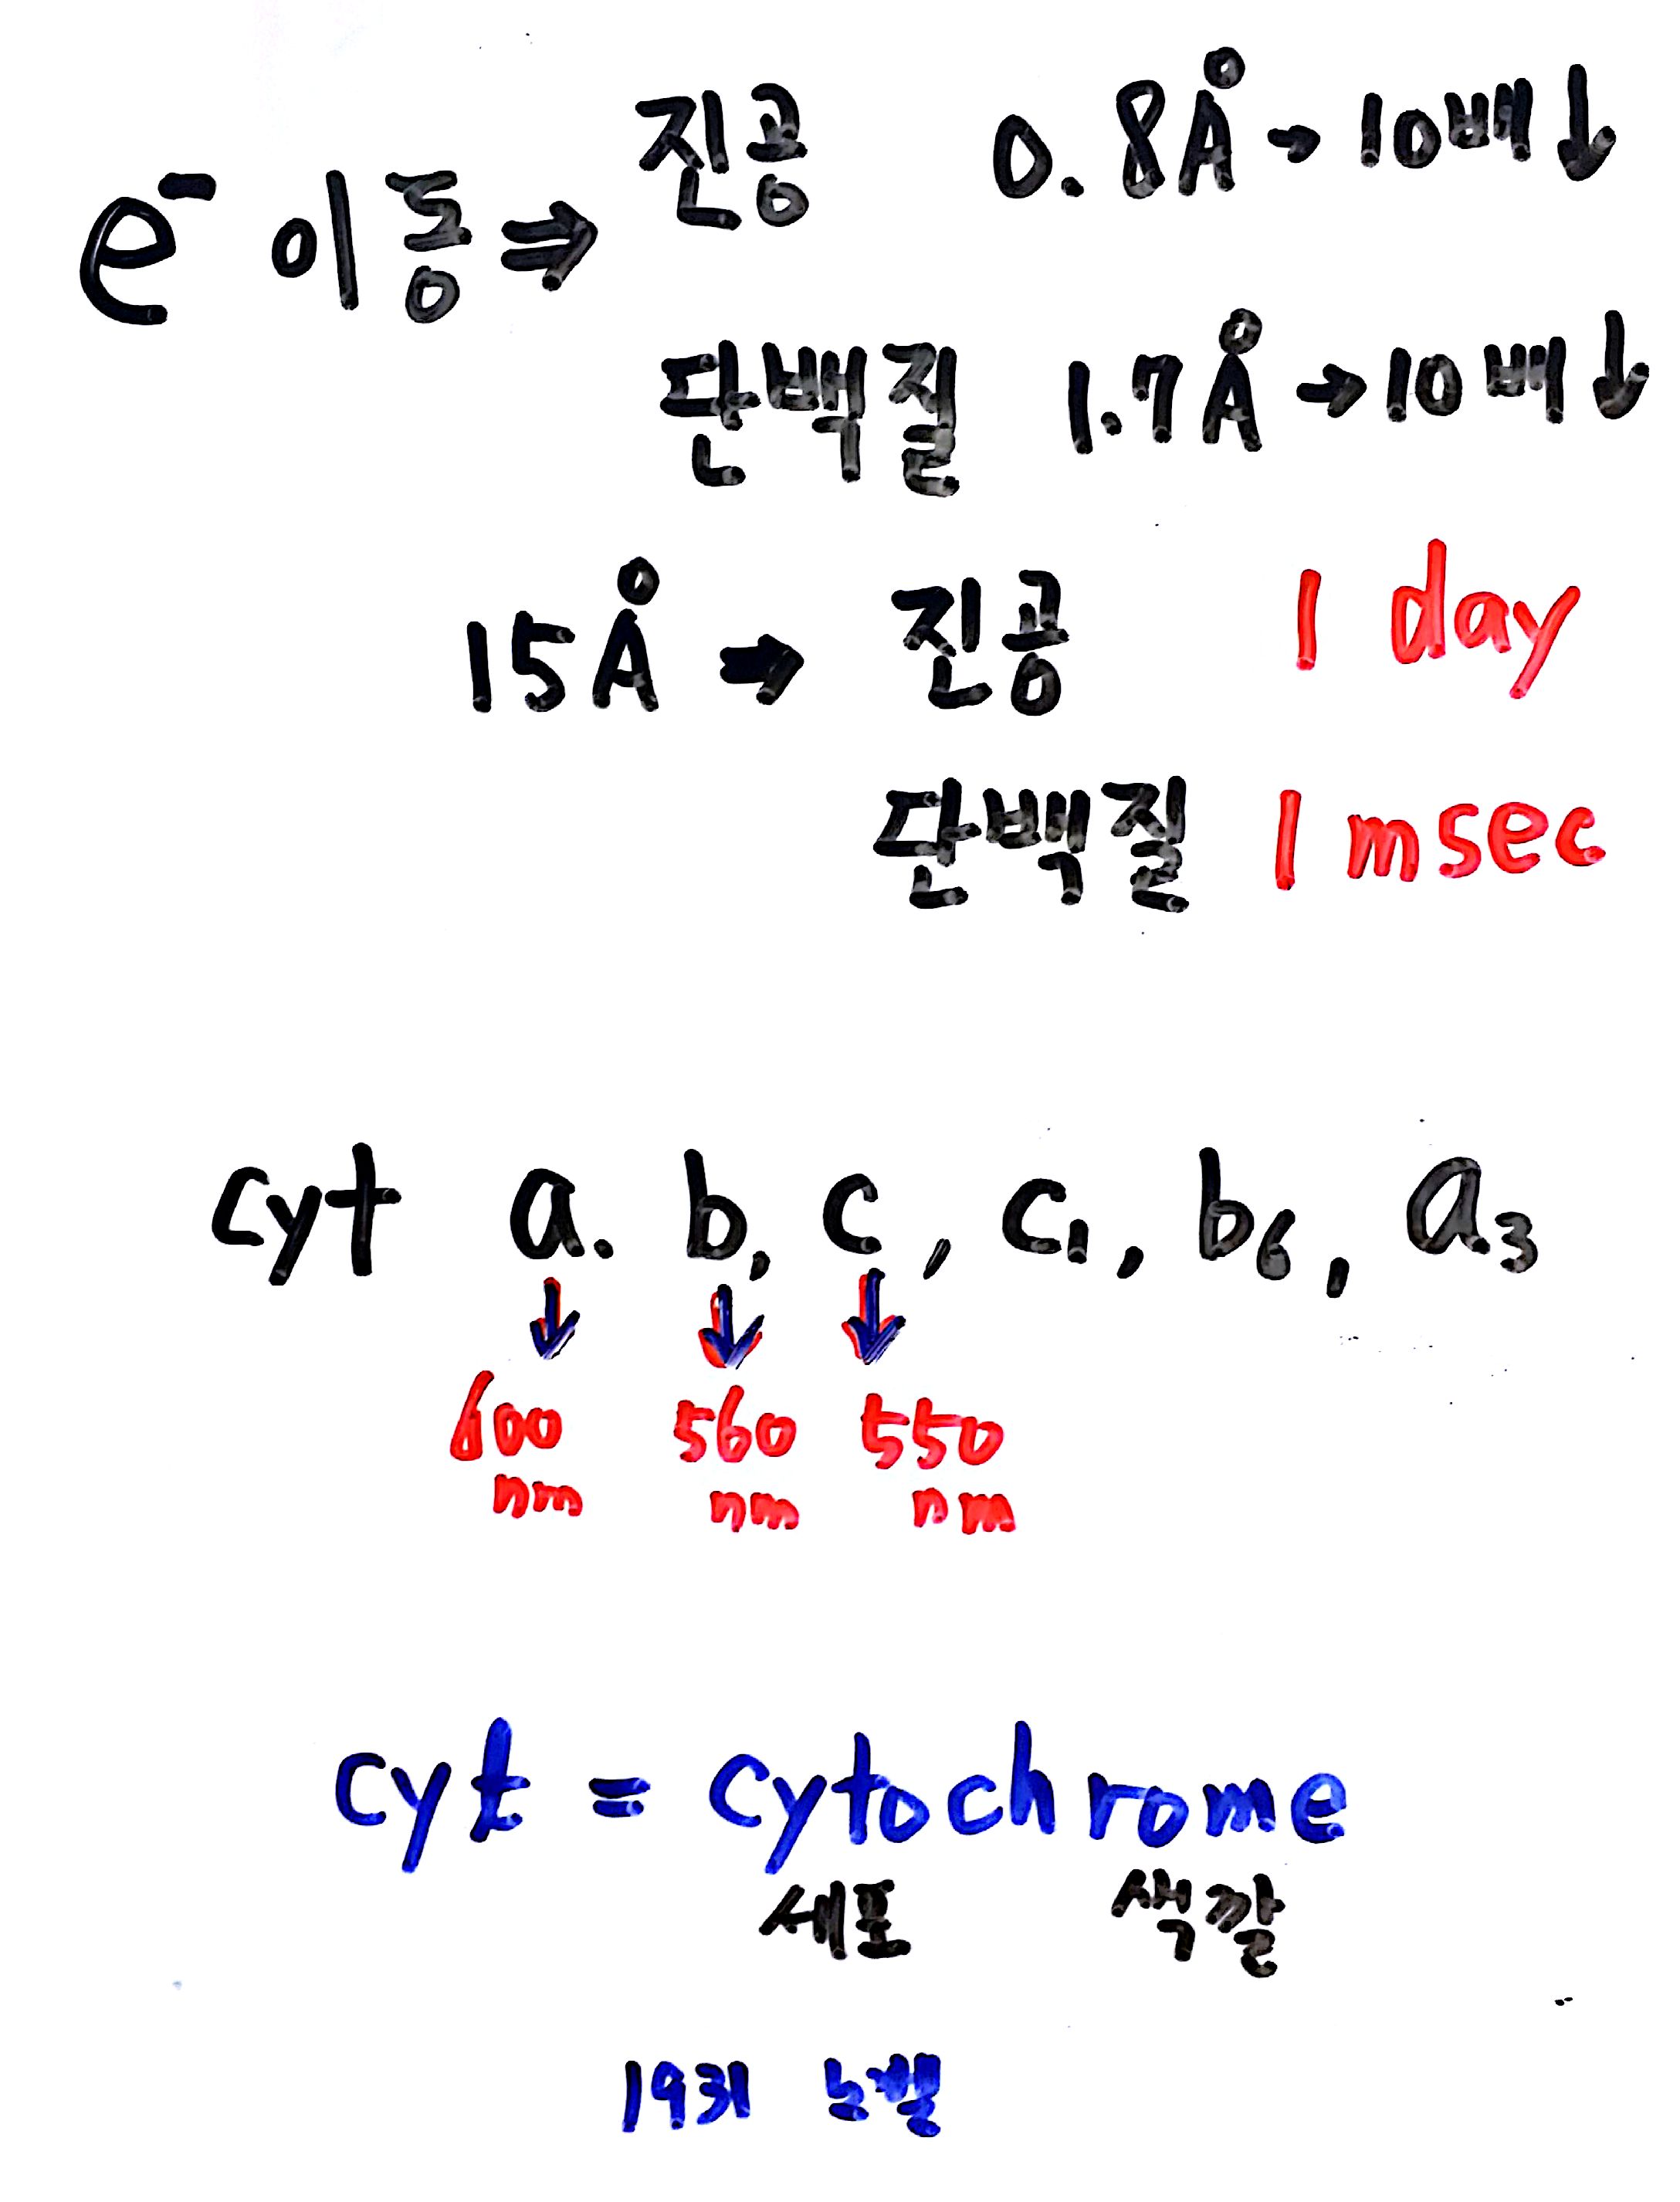 e⁻ 이동 ⇒ 진공 0.8Å → 10배↓
단백질 1.7Å → 10배↓
15Å → 진공 1 day
단백질 1 msec
cyt a. b, c, c₁, b₆, a₃
↓ ↓ ↓
600 560 550
nm nm nm
cyt = cytochrome
세포 색깔
1931 노벨